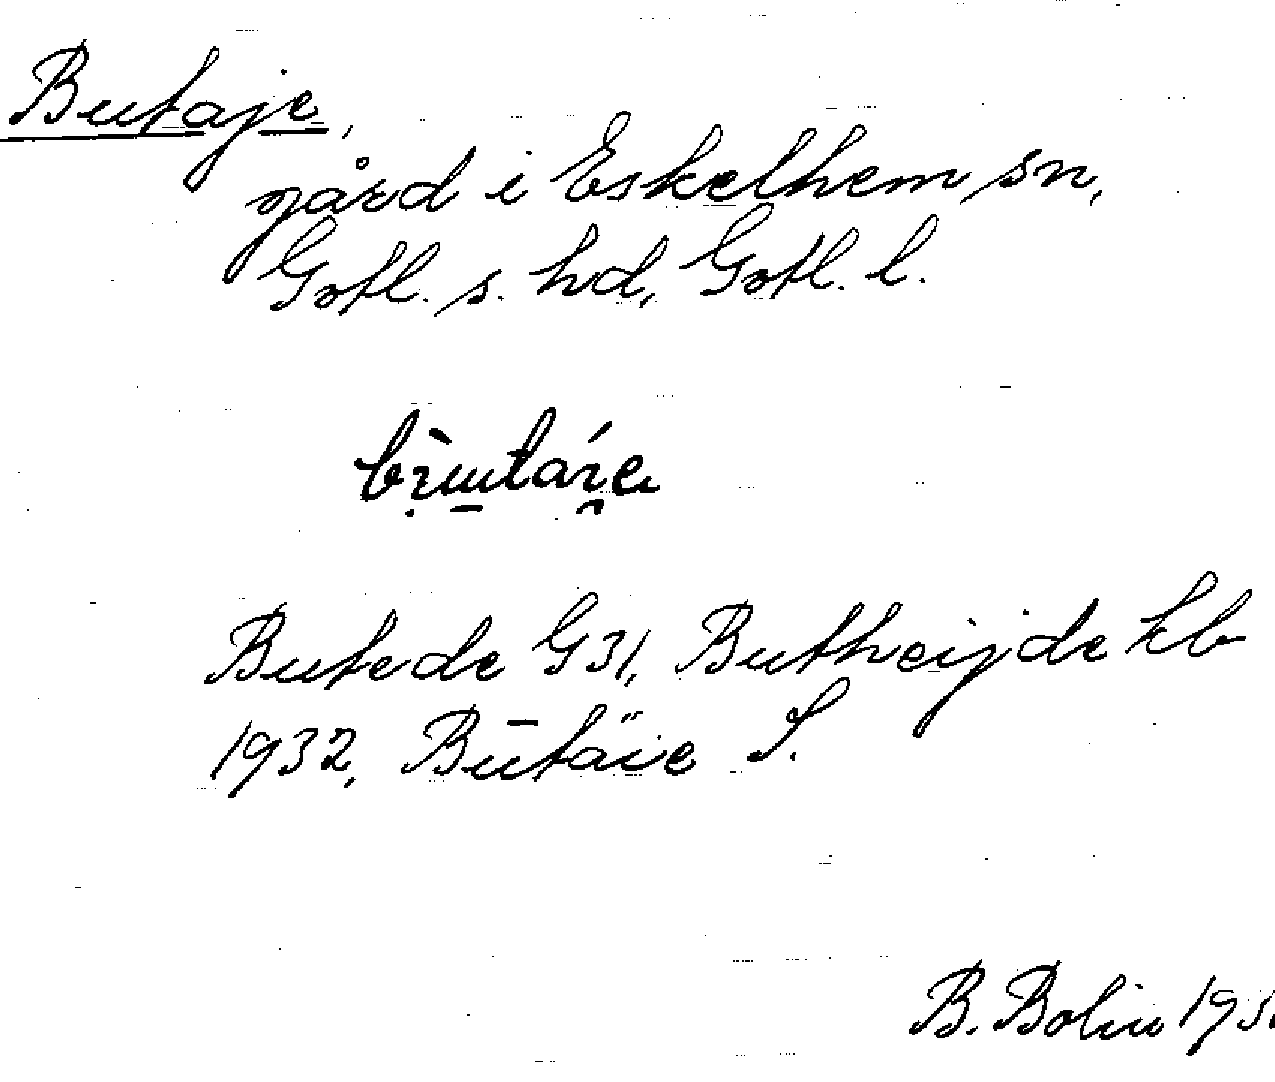 Butaje,
gård i Eskelhem sn,
Gotl. s. hd, Gotl. l.
Butede G31, Butheijde kb
1932, Būtäie S.
B. Bolin